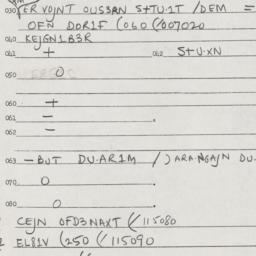 030 ER VOJNT OUS3RN S+TU.1T /DEM =
OFN DOR1F (060 (/007020
040 KEJGN1B3R
041 + 042 S+U.XN
050 0
060 +
061 -
062 -
063 -BUT DU.AR1M /)ARA.NGAJN DU.
070 0
080 0
CEJN OFD3NAXT (/115080
EL81V (250 (/115090